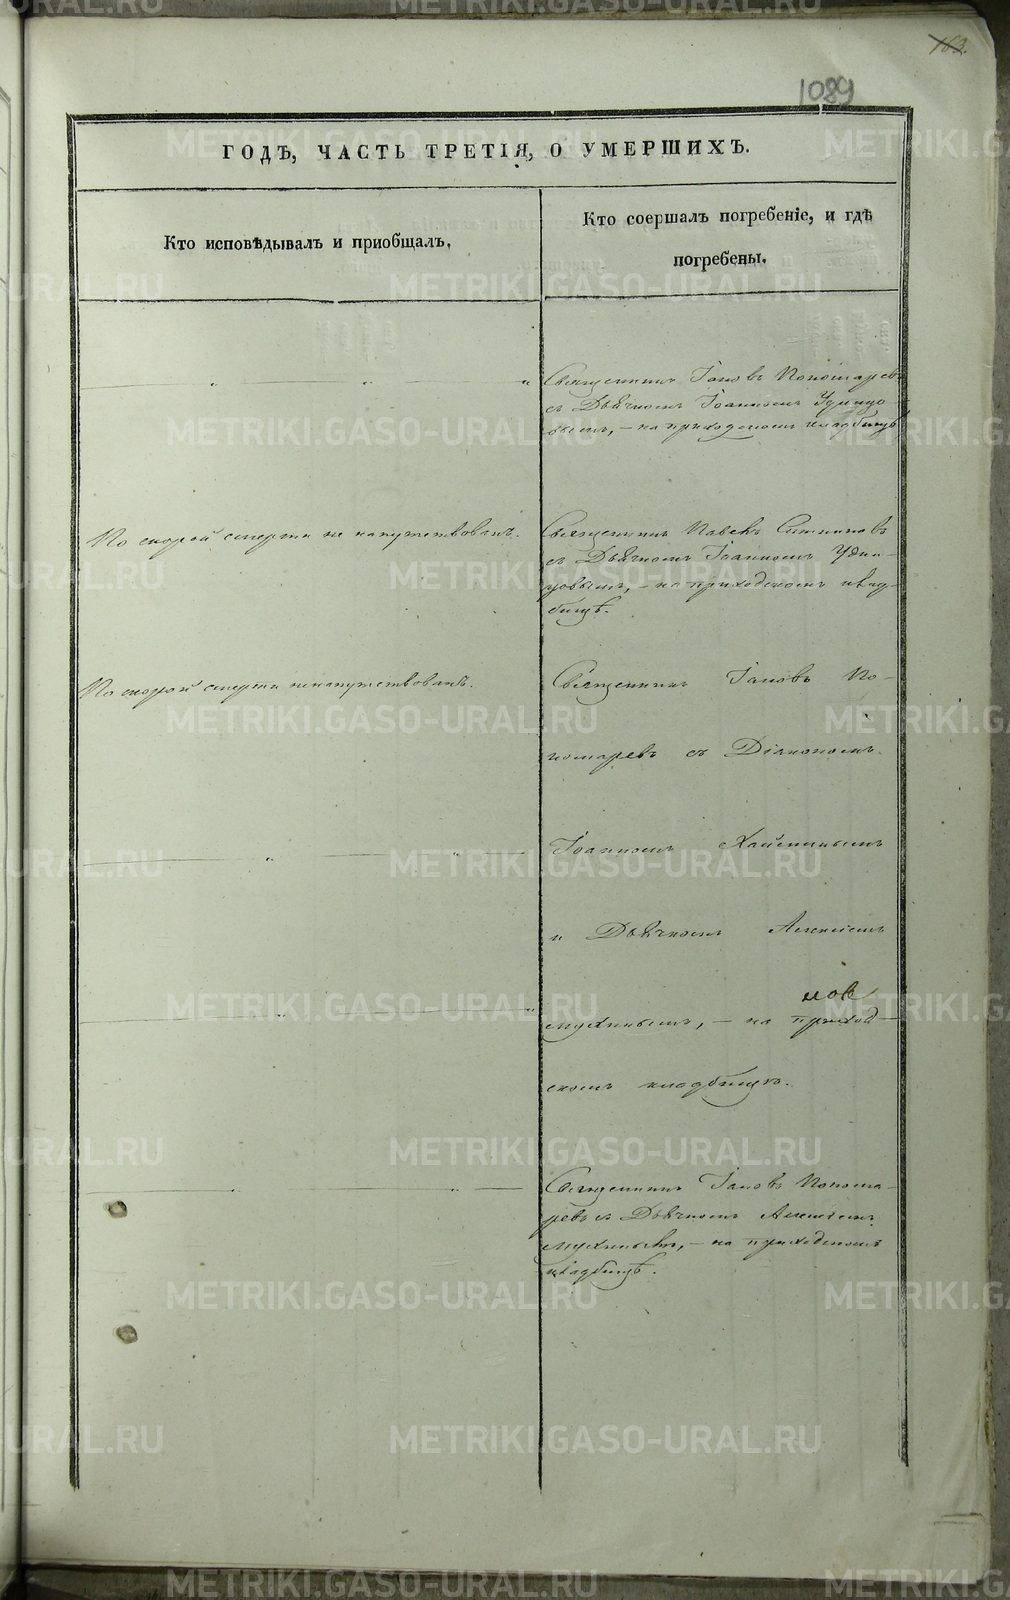 163.
1089
ГОДѢ, ЧАСТЬ ТРЕТІЯ, О УМЕРШИХЪ.
Кто исповѣдывалъ и приобщалъ.
Кто соершалъ погребеніе, и гдѣ
погребены.
Священникъ Іаковъ Пономаревъ
съ Дьячкомъ Іоанномъ Удинцо-
вымъ, – на приходскомъ кладбищѣ
По скорой смерти не напутствованъ.
Священникъ Павелъ
съ Дьячкомъ Іоанномъ Удин-
цовымъ, – на приходскомъ клад-
бищѣ.
По скорой смерти ненапутствованъ.
Священникъ Іаковъ По-
номаревъ съ Діакономъ
Іоанномъ
и Дьячкомъ Алексіемъ
мов
Мухинымъ, – на приход-
скомъ кладбищѣ.
Священникъ Іаковъ Понома-
ревъ съ Дьячкомъ Алексіемъ
Мухинымъ, – на приходскомъ
кладбищѣ.
METRIKI.GASO-URAL.RU